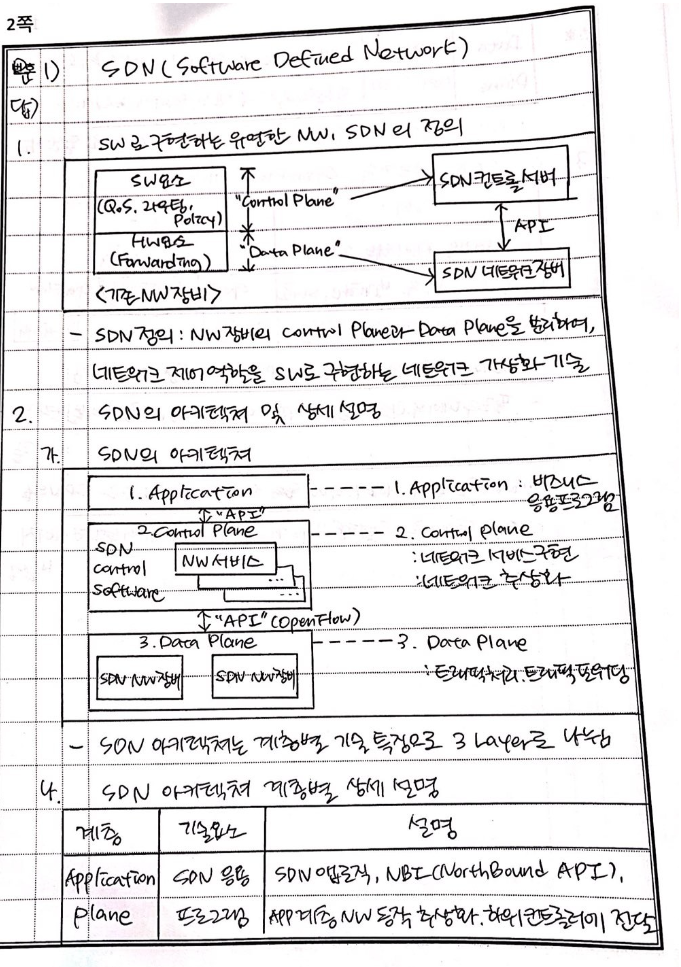 2쪽
문 1) SDN (Software Defined Network)
답)
1. SW로 구현하는 유연한 NW, SDN의 정의
SW요소
(QoS, 라우팅,
Policy)
HW요소
(Forwarding)
<기존 NW장비>
"Control Plane"
"Data Plane"
SDN 컨트롤 서버
API
SDN 네트워크 장비
- SDN 정의 : NW장비의 Control Plane과 Data Plane을 분리하여,
네트워크 제어역할을 SW로 구현하는 네트워크 가상화 기술
2. SDN의 아키텍쳐 및 상세 설명
가. SDN의 아키텍쳐
1. Application
"API"
2. Control Plane
SDN
Control
Software
NW서비스
...
...
"API" (OpenFlow)
3. Data Plane
SDN NW장비 SDN NW장비
1. Application : 비즈니스
응용프로그램
2. Control plane
: 네트워크 서비스구현
: 네트워크 추상화
3. Data Plane
: 트래픽처리, 트래픽 포워딩
- SDN 아키텍쳐는 계층별 기술 특징으로 3 Layer로 나뉨
나. SDN 아키텍쳐 계층별 상세 설명
계층 기술요소 설명
Application SDN 응용 SDN 앱로직, NBI (NorthBound API),
plane 프로그램 APP계층 NW 동작 추상화, 하위 컨트롤러에 전달